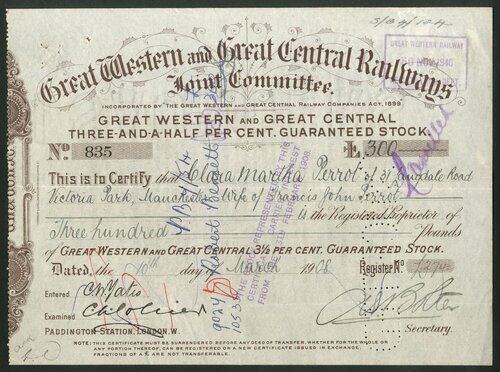 S/34/184
GREAT WESTERN RAILWAY
NOV. 1946
Great Western and Great Central Railways
Joint Committee.
INCORPORATED BY THE GREAT WESTERN AND GREAT CENTRAL RAILWAY COMPANIES ACT, 1899.
GREAT WESTERN AND GREAT CENTRAL
THREE-AND-A-HALF PER CENT. GUARANTEED STOCK.
No. 835
£ 300
Cancelled
This is to Certify that Clara Martha Perrot of 31 Langdale Road
Victoria Park, Manchester, Wife of Francis John Perrot
is the Registered Proprietor of
Three hundred Pounds
of GREAT WESTERN AND GREAT CENTRAL 3½ PER CENT. GUARANTEED STOCK.
Dated the 10th day of March 1908
Register No. 7274
Entered
Examined
Secretary.
PADDINGTON STATION, LONDON. W.
NOTE: THIS CERTIFICATE MUST BE SURRENDERED BEFORE ANY DEED OF TRANSFER, WHETHER FOR THE WHOLE OR
ANY PORTION THEREOF, CAN BE REGISTERED OR A NEW CERTIFICATE ISSUED IN EXCHANGE.
FRACTIONS OF A £ ARE NOT TRANSFERABLE.
THE STOCK REPRESENTED BY THIS
CERTIFICATE CARRIES INTEREST
FROM THE 29TH FEBRUARY 1908.
Robert Bennett